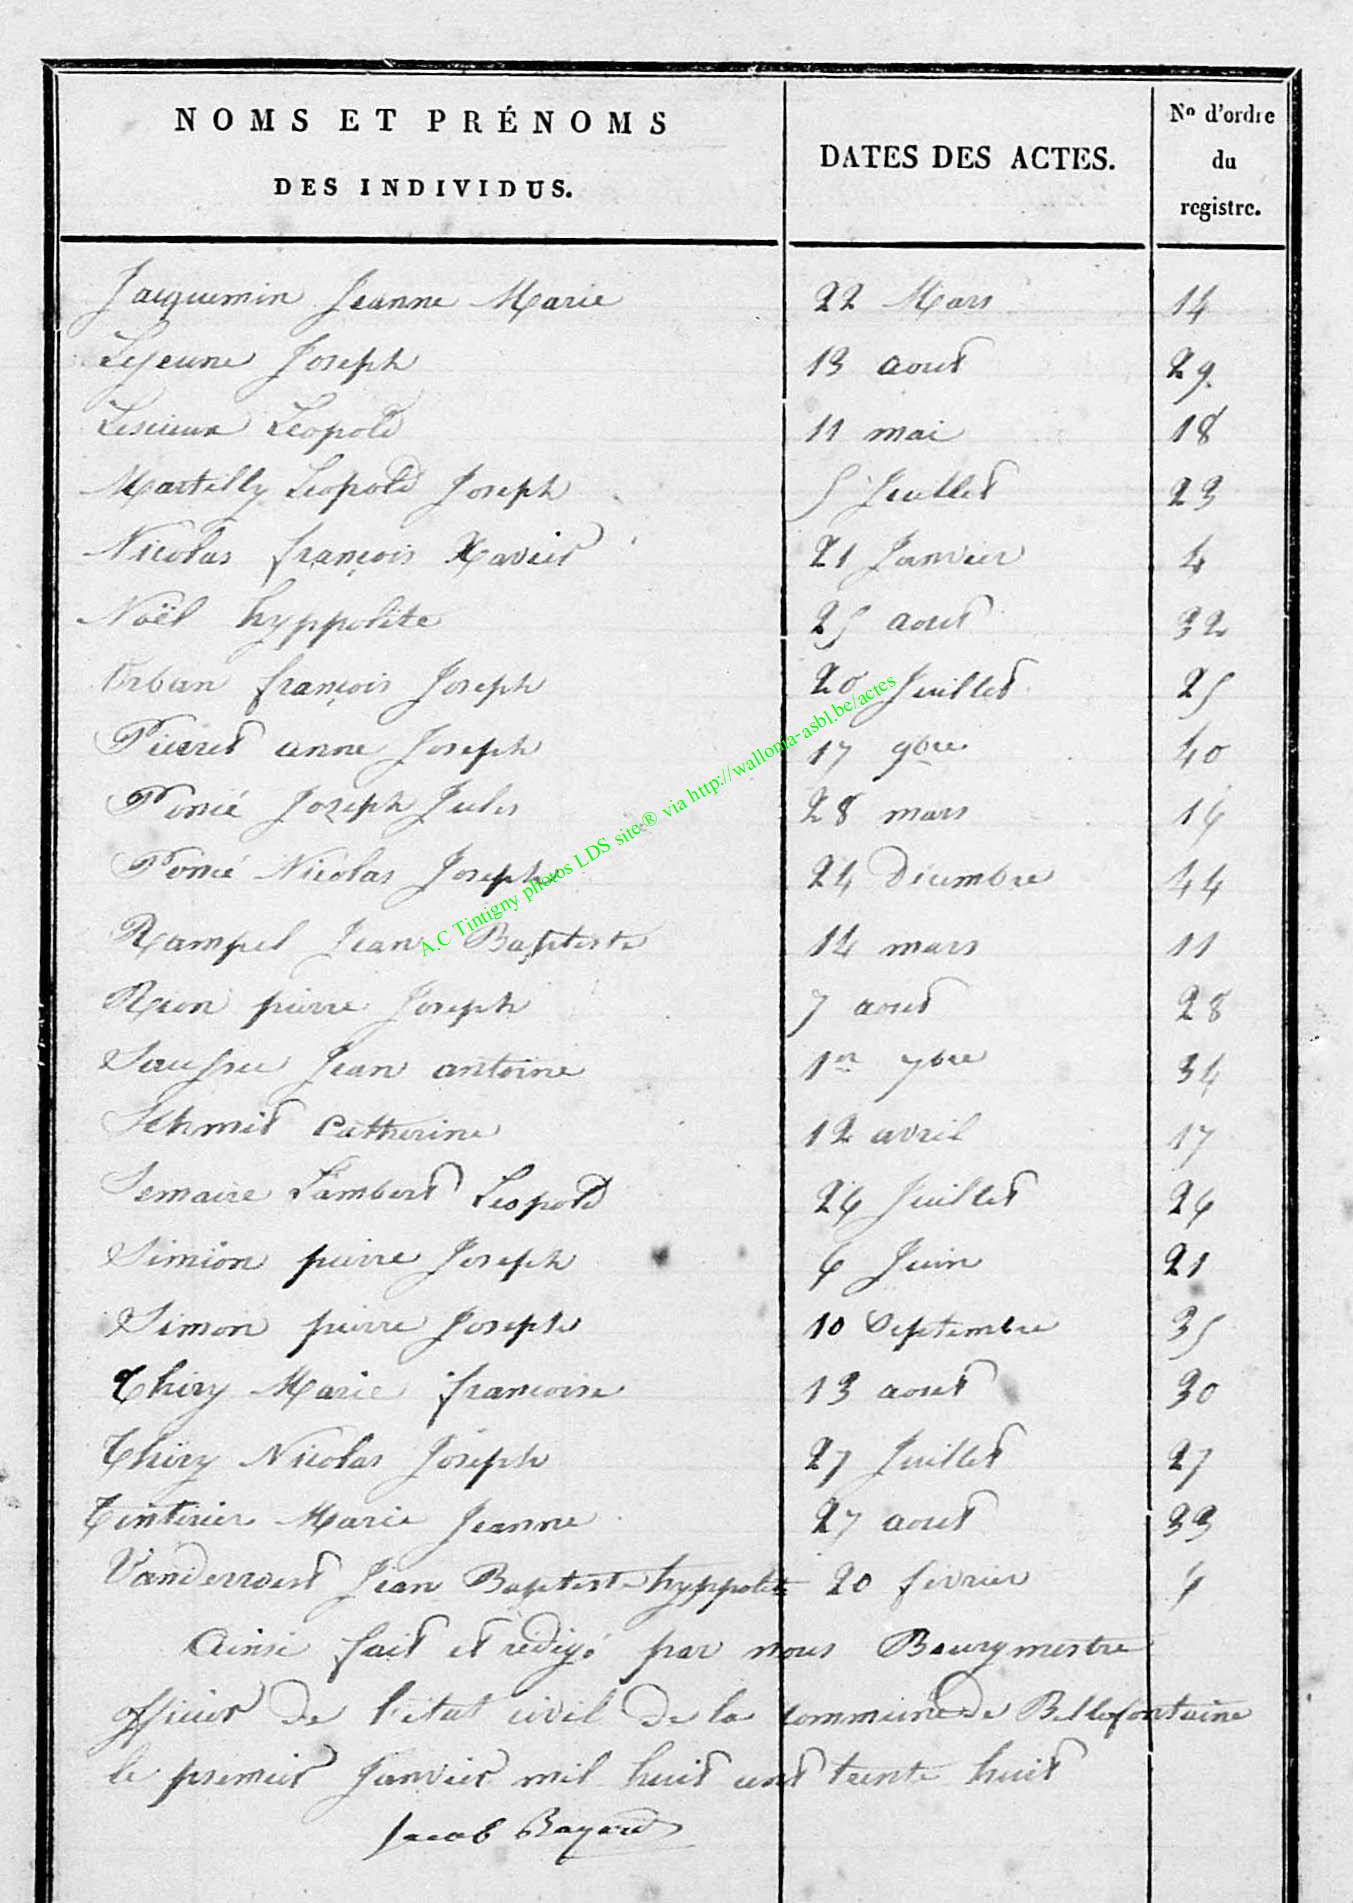 NOMS ET PRÉNOMS
DES INDIVIDUS.
DATES DES ACTES.
No d'ordre
du
registre.
Jacquemin Jeanne Marie 22 Mars 14
Lejeune Joseph 13 aout 29
Lesieux Léopold 11 mai 18
Martilly Léopold Joseph 5 Juillet 23
Nicolas françois Xavier 21 Janvier 4
Noël hyppolite 25 aout 32
Urban françois Joseph 20 Juillet 25
Pierret anne Joseph 17 9bre 40
Poncé Joseph Jules 28 mars 16
Poncé Nicolas Joseph 24 Décembre 44
Rampel Jean Baptiste 14 mars 11
Rion pierre Joseph 7 aout 28
Jean antoine 1er 7bre 34
Schmit Catherine 12 avril 17
Semaire Lambert Léopold 26 Juillet 26
Simion pierre Joseph 6 Juin 21
Simon pierre Joseph 10 Septembre 35
Thiry Marie françoise 13 aout 30
Thiry Nicolas Joseph 27 Juillet 27
Tintinier Marie Jeanne 27 aout 33
Jean Baptiste hyppolite 20 février 6
Ainsi fait et rédigé par nous Bourgmestre
officier de l'état civil de la commune de Bellefontaine
le premier Janvier mil huit cent trente huit
Jacob Bayard
A.C Tintigny photos LDS site ® via http://wallonia-asbl.be/actes